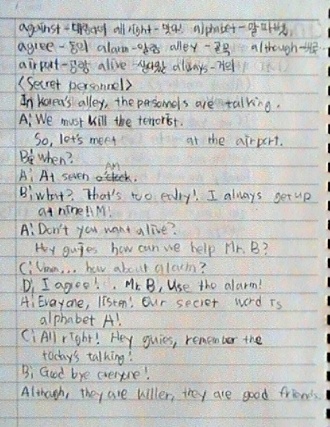 against - 대항하여 all right - 맞아 alphabet - 알파벳
agree - 동의 alarm - 알람 alley - 골목 although - 비록
airport - 공항 alive - 살아있는 always - 거의
<Secret personnel>
In korea's alley, the personnels are talking.
A: We must kill the terrorist.
So, let's meet at the airport.
B: when?
A: At seven AM
B: what? That's too early! I always get up
at nine!!M!
A: Don't you want alive?
Hey guies how can we help Mr. B?
C: Umm... how about alarm?
D: I agree! . Mr B, Use the alarm!
A: Everyone, listen! Our secret word is
alphabet A!
C: All right! Hey guies, remember the
today's talking!
B: Good bye everyone!
Although, they are killer, they are good friends